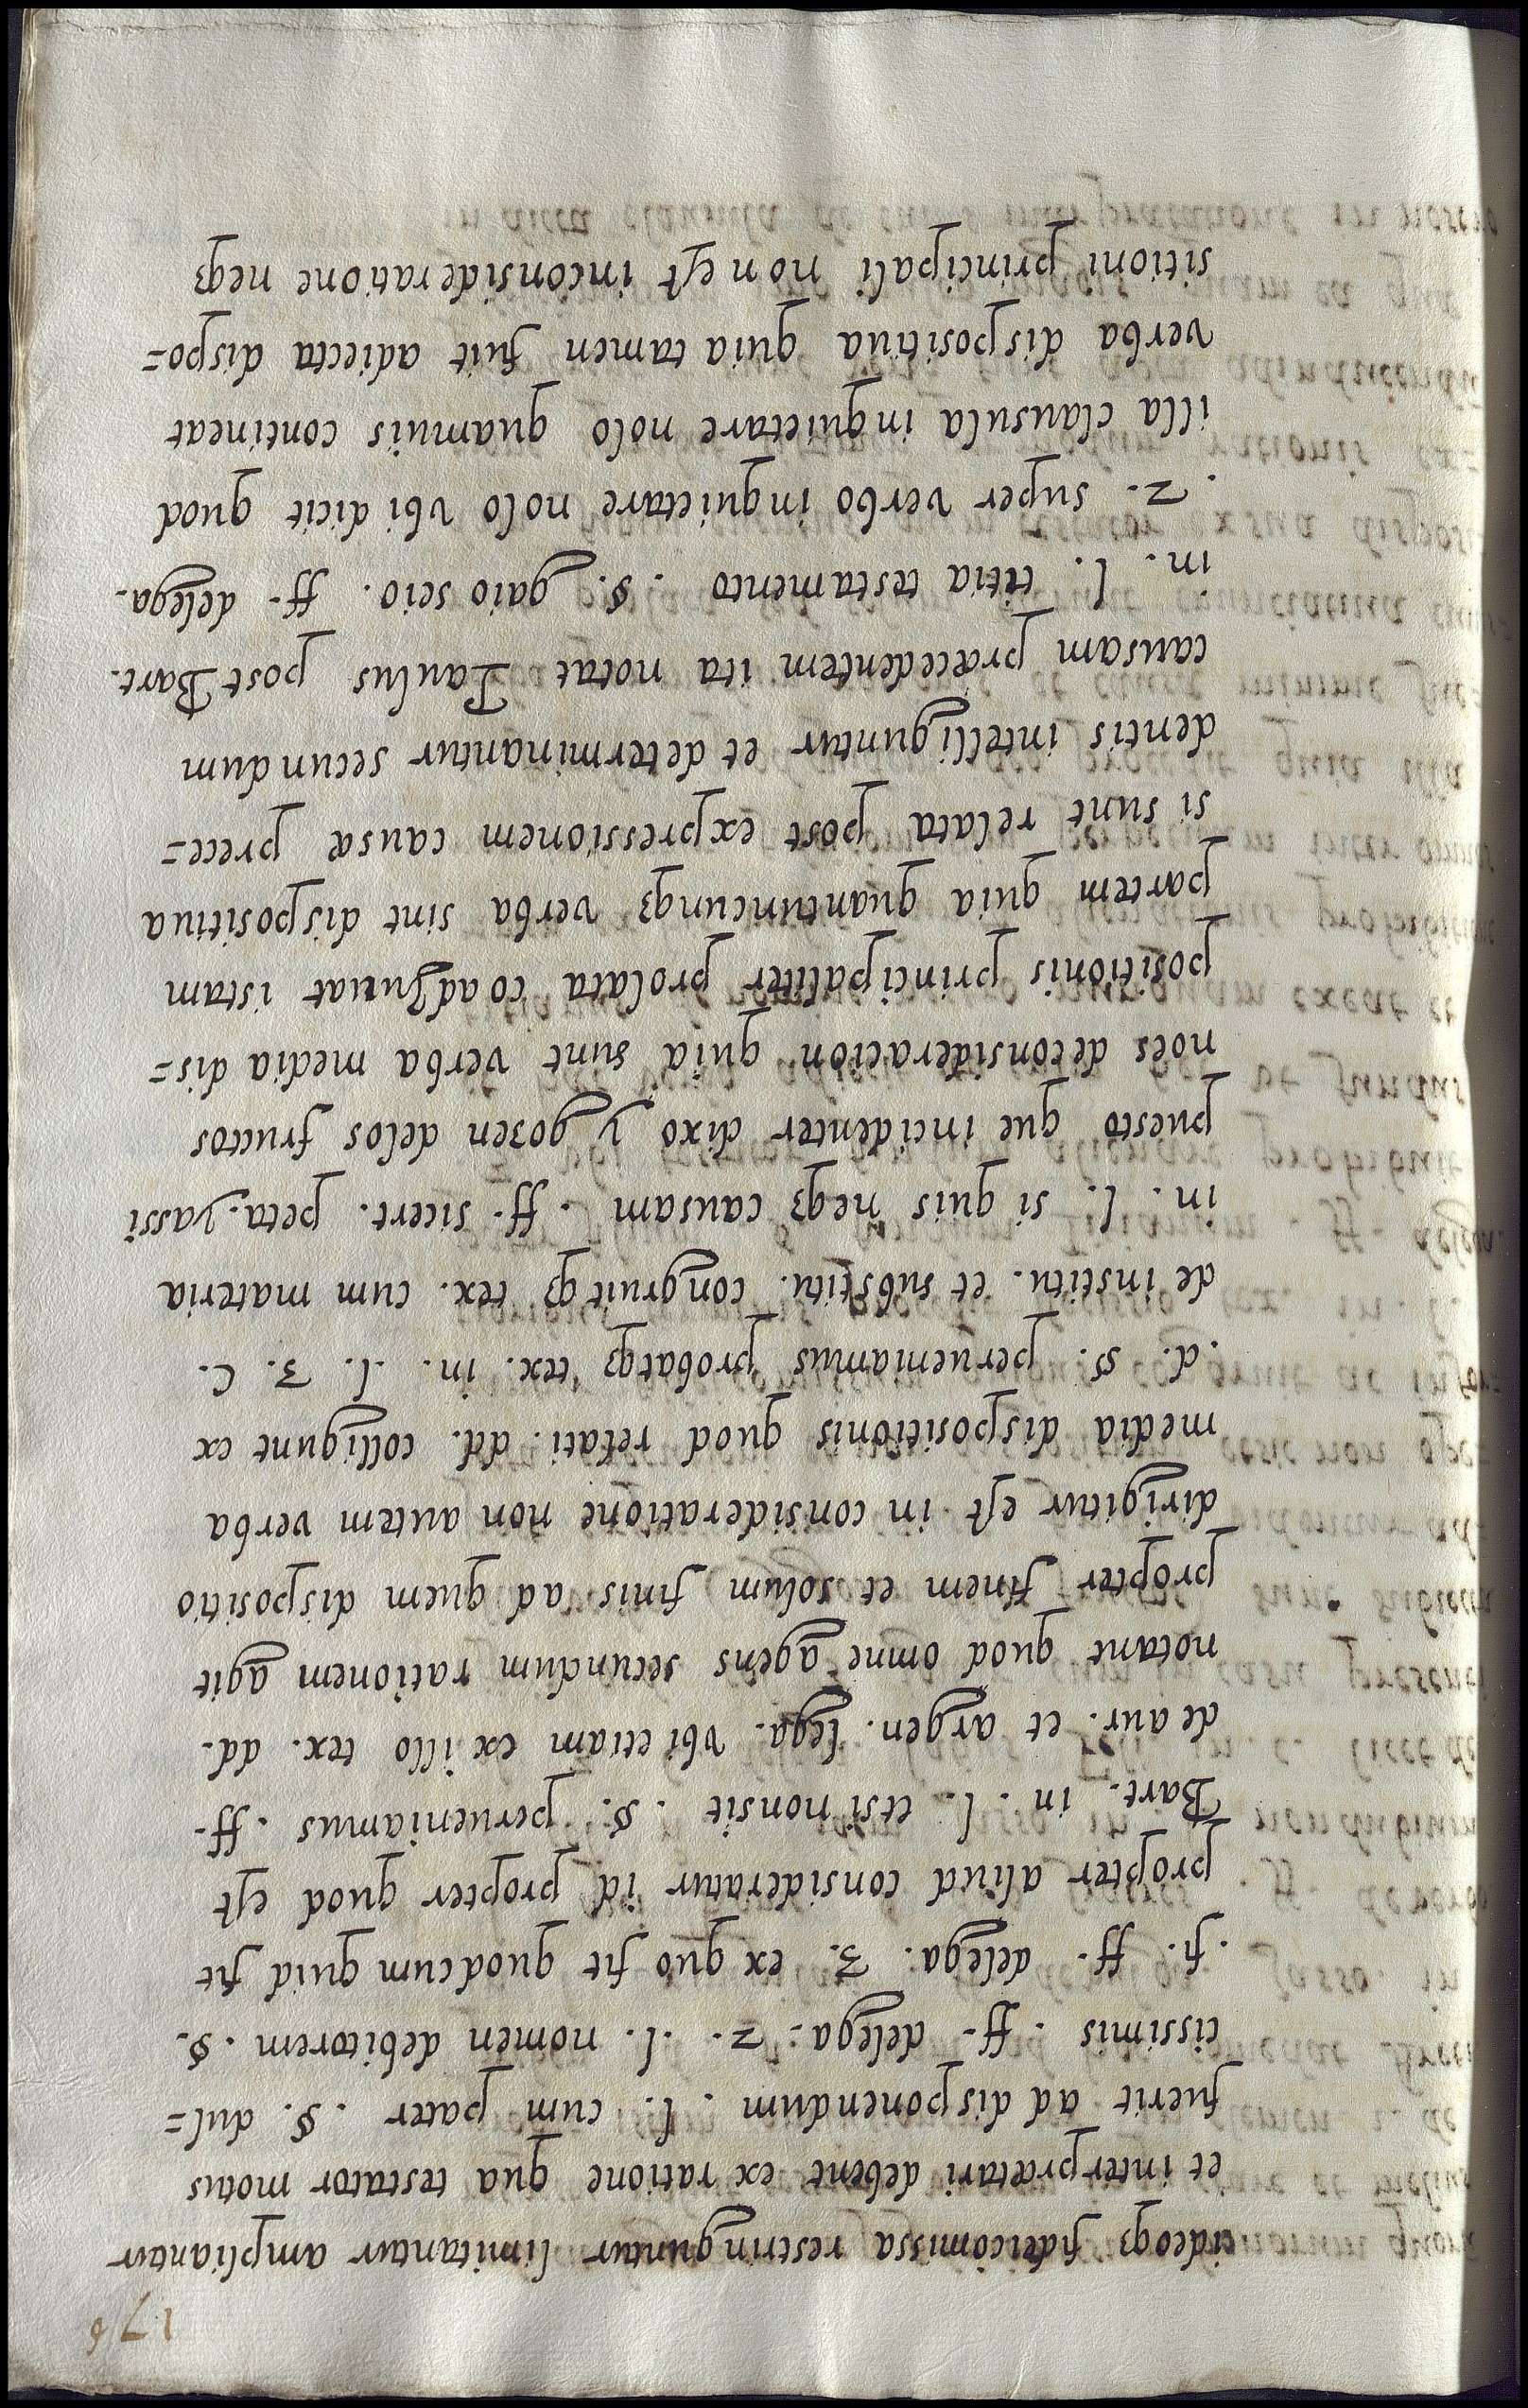 176
ideoqȝ fideicomissa restringuntur limitantur ampliantur
et interpretari debent ex ratione qua testator motus
fuerit ad disponendum . l. cum pater . §. dul=
cissimis . ff. delega. 2. .l. nomen debitorem . §.
.fi. ff. delega. 3. ex quo fit quodcum quid fit
propter aliud consideratur id propter quod est
Bart. in . l. etsi nonsit . §. perueniamus . ff.
de aur. et argen. lega. vbi etiam ex illo tex. dd.
notant quod omne agens secundum rationem agit
propter finem et solum finis ad quem dispositio
dirigitur est in consideratione non autem verba
media dispositionis quod relati. dd. colligunt ex
.d. §. perueniamus probatqȝ tex. in. .l. 3. C.
de institu. et substitu. congruitqȝ tex. cum materia
in. l. si quis neqȝ causam . ff. sicert. peta. yassi
puesto que incidenter dixo y gozen delos fructos
noes deconsideracion quia sunt verba media dis=
positionis principaliter prolata coadjuuat istam
partem quia quantuncunqȝ verba sint dispositiua
si sunt relata post expressionem causæ prece=
dentis intelliguntur et determinantur secundum
causam præcedentem ita notat Paulus post Bart.
in. l. titia testamento . §. gaio seio. ff. delega.
.2. super verbo inquietare nolo vbi dicit quod
illa clausula inquietare nolo quamuis contineat
verba dispositiua quia tamen fuit adiecta dispo=
sitioni principali non est inconsideratione neqȝ